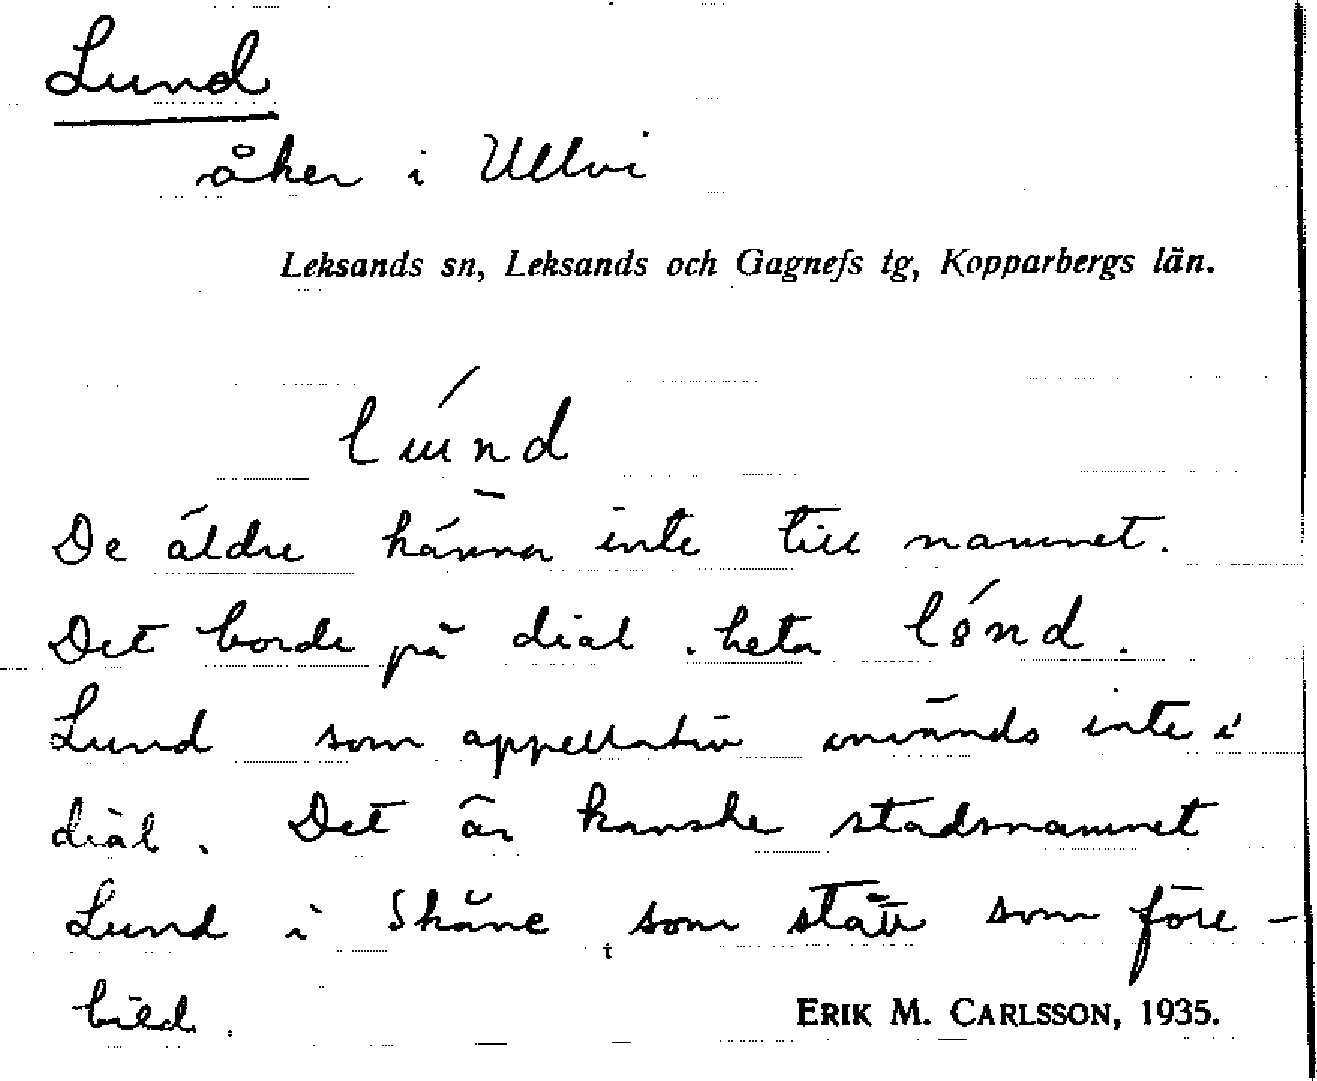 Lund
åker i Ullvi
Leksands sn, Leksands och Gagnefs tg, Kopparbergs län.
De äldre känna inte till namnet.
Det borde på dial. heta
Lund som appellativ används inte i
dial. Det är kanske stadsnamnet
Lund i Skåne som stått som före-
bild.
ERIK M. CARLSSON, 1935.